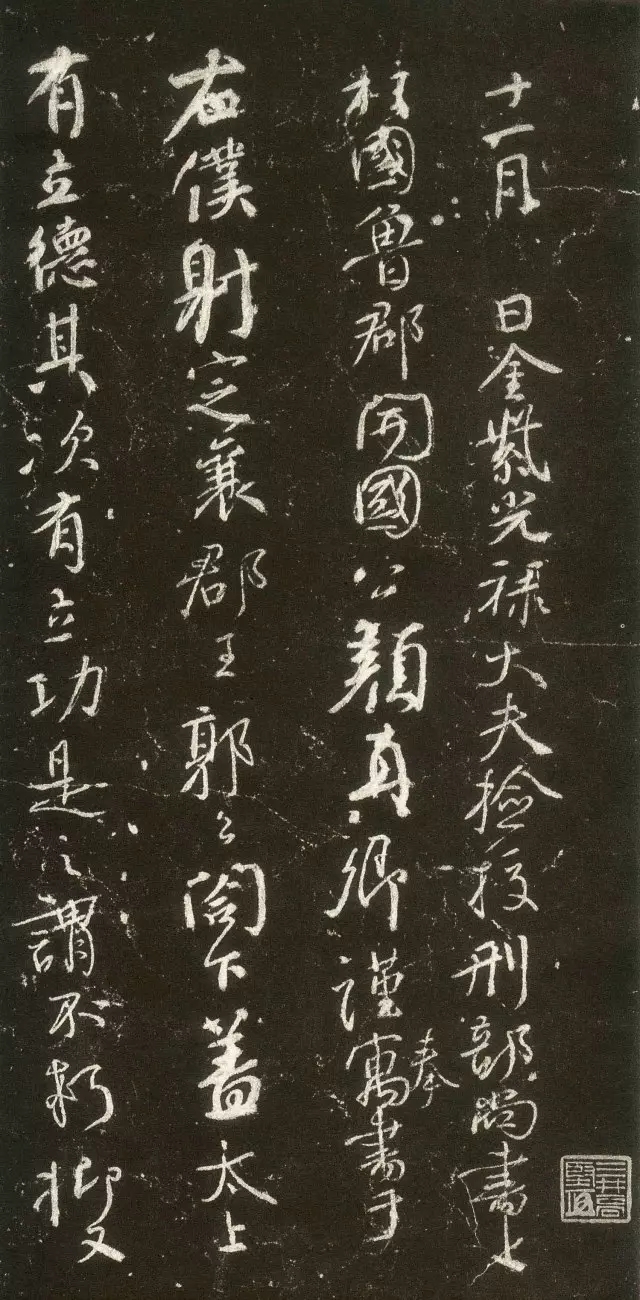 十一月 日金紫光祿大夫檢校刑部尚書上
柱國魯郡開國公顏真卿謹寓奉書于
右僕射定襄郡王郭公閤下蓋太上
有立德其次有立功是之謂不朽抑又